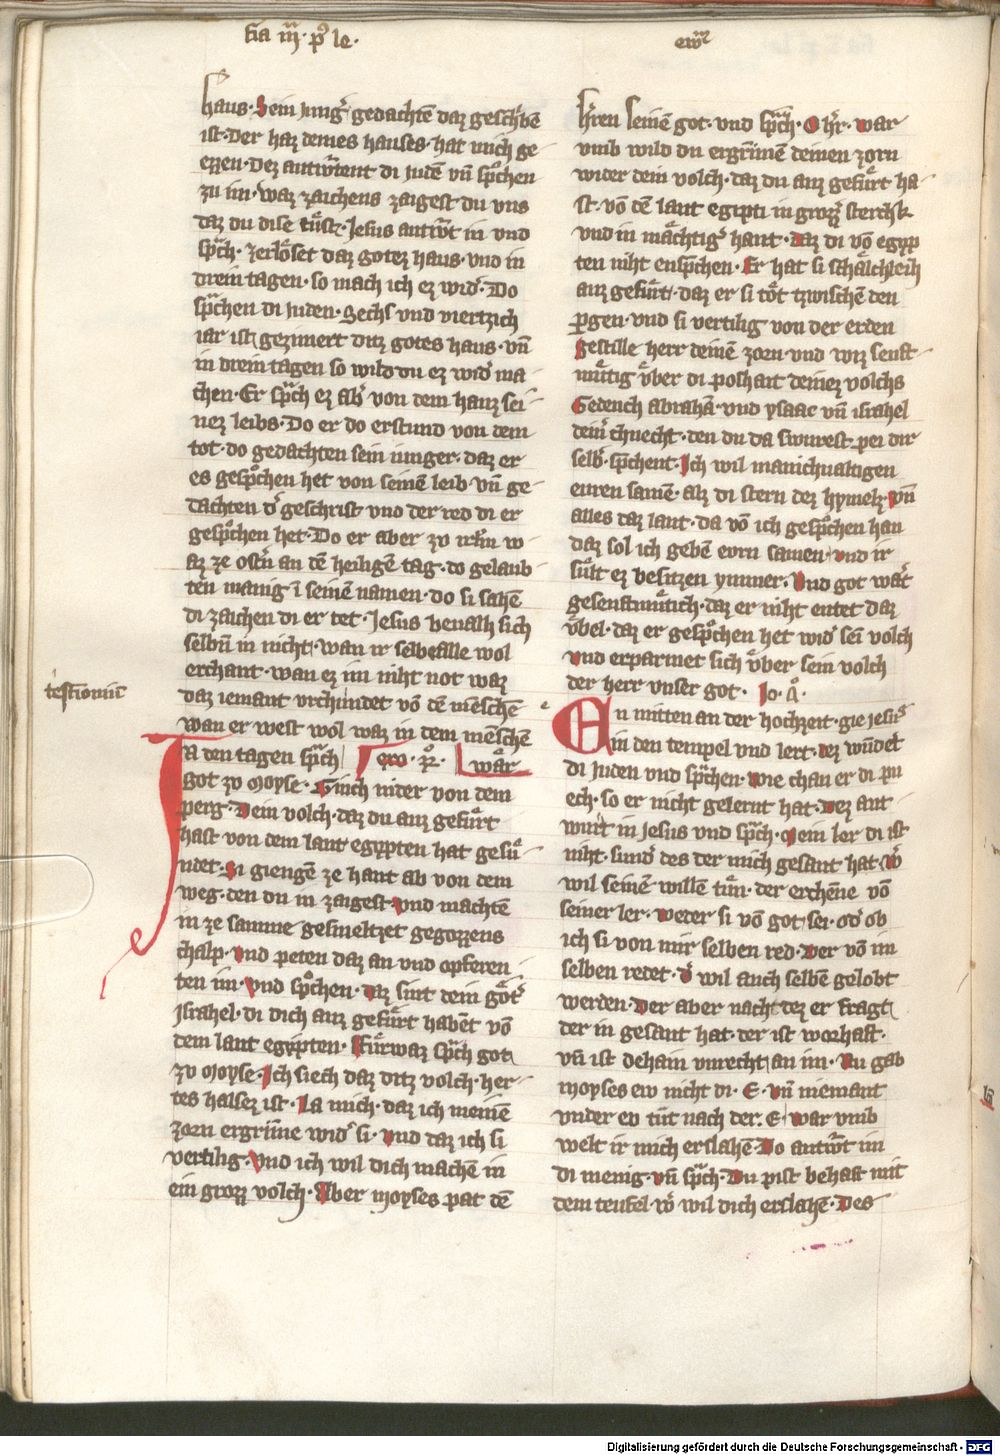 fia iii p͛ le.
ew͛
haus. Sein Jung͛ gedachtē daz geschͥbē
ist. Der haz deines hauses. hat mich ge
ezzen. Dez antw͛tent di Judē vn̄ spͦchen
zu im. waz zaichens zaigest du vns
daz du dise tuͤst. Jesus antw͛t in vnd
spͣch. zerloͤset daz gotez haus. vnd in
drein tagen. so mach ich ez wid͛. Do
spͣchen di Juden. Sechs vnd viertzich
iar ist gezimert ditz gotes haus. vn̄
in drein tagen so wild du ez wid͛ ma
chen. Er spͣch ez ab͛ von dem hauz sei
nez leibs. Do er do erstund von dem
tot. do gedachten sein iunger. daz er
es gespͦchen het von seinē leib vn̄ ge
dachten d͛ geschrift vnd der red di er
gespͦchen het. Do er aber zu irl̄m w
az ze ost͛n an dē heiligē tag. do gelaub
ten manig ī seinē namen. do si sahē
di zaichen di er tet. Jesus beualh sich
selbn̄ in nicht. wan ir selbe alle wol
erchant. wan ez im niht not waz
testioniū
daz iemant vrchūdet vō dē mēschē
wan er west wol waz in dem mēschē
In den tagen spͣch ew. p͛. waͤr
got zv Moyse. Ginch nider von dem
perg. Dein volch. daz du auz gefuͤrt
hast von dem lant egypten hat gesuͤ
ndet. Si giengē ze hant ab von dem
weg. den du in zaigest. vnd machtē
in ze samme gesmeltzet gegozzens
chalp. vnd peten daz an vnd opferen
ten im. vnd spͦchen. daz sint dein goͤt͛
israhel. di dich auz gefuͤrt habēt vō
dem lant egipten. Fuͤrwaz spͣch got
zv Moyse. Ich siech daz ditz volch. her
tes halsez ist. La mich. daz ich meinē
zorn ergrīme wid͛ si. vnd daz ich si
vertilig. vnd ich wil dich machē in
ein grozz volch. Aber moyses pat dē
h͛ren seinē got. vnd spͣch. O h͛r. war
vmb wild du ergrimē deinen zorn
wider dein volch. daz du auz gefuͤrt ha
st. vō dē lant egipti in grozz͛ sterchk
vnd in maͤchtig͛ hant. daz di vō egyp
ten niht ensp͛chen. Er hat si schaͤlchleich
auz gefuͤrt. daz er si toͤt tzwischē den
pergen. vnd si vertilig von der erden
Gestille herr deinē zorn. vnd wiz senft
muͤtig vͤber di poshait deinez volchs
Gedench abrahā. vnd ysaac vn̄ israhel
dein͛ chnecht. den du da swurest. pei dir
selb͛. sp͛chent. Ich wil manichualtigen
euren samē. alz di stern dez hymelz. vn̄
alles daz lant. da vō ich gespͦchen han
daz sol ich gebē eurn samen. vnd ir
suͤlt ez besitzen ymmer. Vnd got waͤr͛
gesenftmuͤtich. daz er niht entet daz
vͤbel. daz er gespͦchen het wid͛ sei volch
vnd erparmet sich vͤber sein volch
der herr vnser got. Jo. a͛.
En mitten an der hochzeit. gie jesu͛
in den tempel vnd lert. dez wūdet
di Juden vnd spͣchen. wie chan er di pu
ech. so er nicht gelernt hat. Dez ant
wurt in Jesus vnd spͣch. Mein ler di ist
niht. sund͛ des der mich gesant hat. w͛
wil seinē willē tuͤn. der erchēne vō
seiner ler. weder si vō got sei. od͛ ob
ich si von mir selben red. Der vō im
selben redet. d͛ wil auch selbē gelobt
werden. Der aber nacht dez er fragt
der in gesant hat. der ist worhaft.
vn̄ ist dehain vnrecht an im. Nu gab
moyses ew nicht di. E. vn̄ niemant
vnder ev tüt nach der. E. war vmb
welt ir mich erslahē. Do antw͛t im
di menig. vn̄ spͣch. Du pist behaft mit
dem teufel w͛ wil dich erslahē. Des
Digitalisierung gefördert durch die Deutsche Forschungsgemeinschaft - DFG